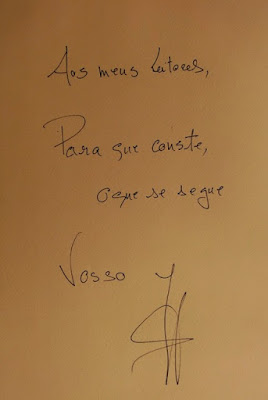 Aos meus leitores,
Para que conste,
o que se segue
Vosso